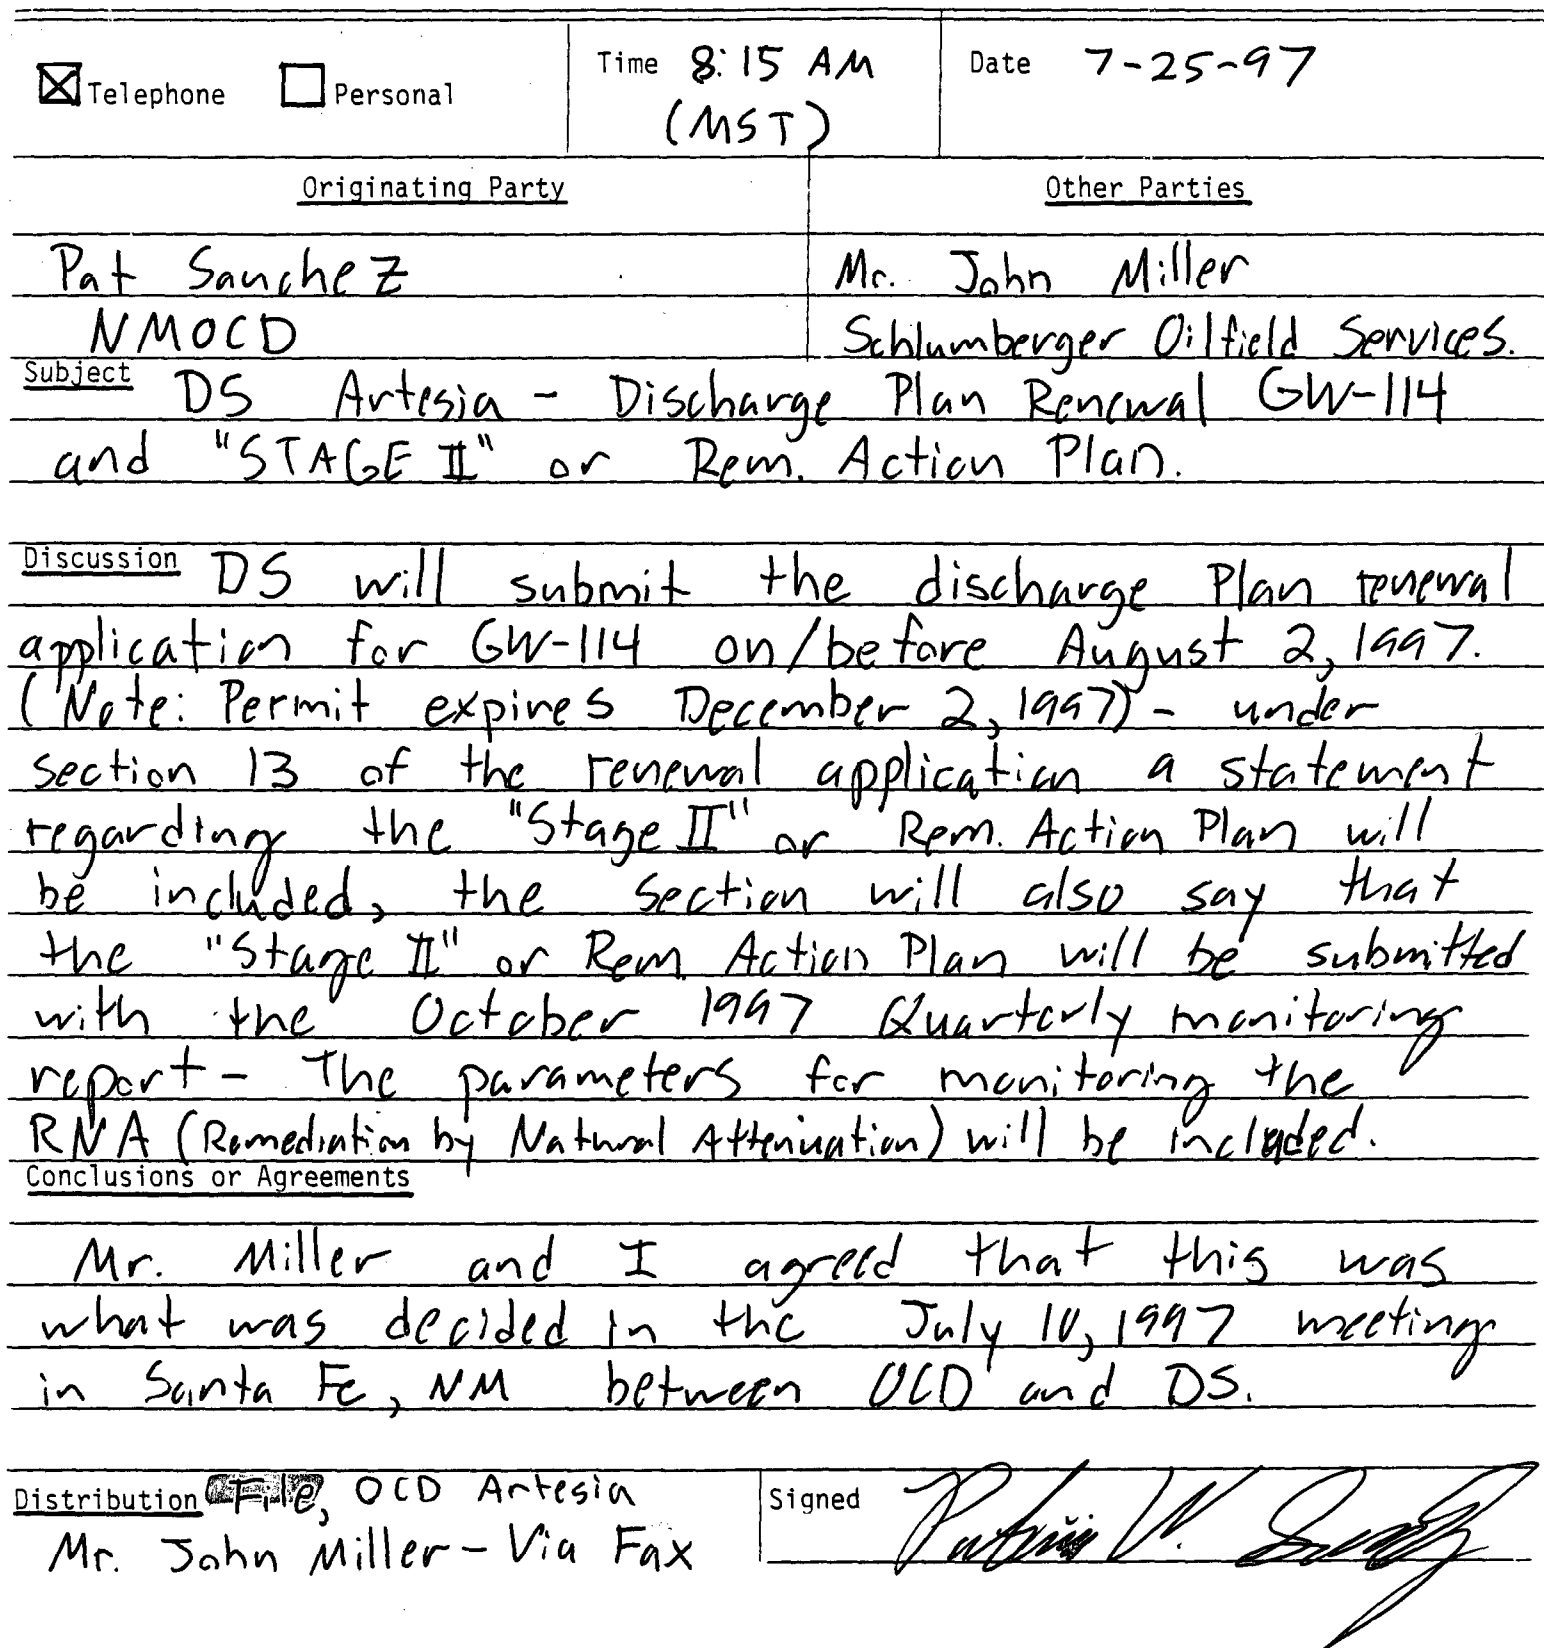 Telephone Personal Time 8:15 AM Date 7-25-97
(MST)
Originating Party Other Parties
Pat Sanchez Mr. John Miller
NMOCD Schlumberger Oilfield Services.
Subject DS Artesia - Discharge Plan Renewal GW-114
and "STAGE II" or Rem. Action Plan.
Discussion DS will submit the discharge Plan renewal
application for GW-114 on/before August 2, 1997.
(Note: Permit expires December 2, 1997) - under
section 13 of the renewal application a statement
regarding the "Stage II" or Rem. Action Plan will
be included, the section will also say that
the "Stage II" or Rem. Action Plan will be submitted
with the October 1997 Quarterly monitoring
report - The parameters for monitoring the
RNA (Remediation by Natural Attenuation) will be included.
Conclusions or Agreements
Mr. Miller and I agreed that this was
what was decided in the July 10, 1997 meeting
in Santa Fe, NM between OCD and DS.
Distribution File, OCD Artesia Signed
Mr. John Miller - Via Fax